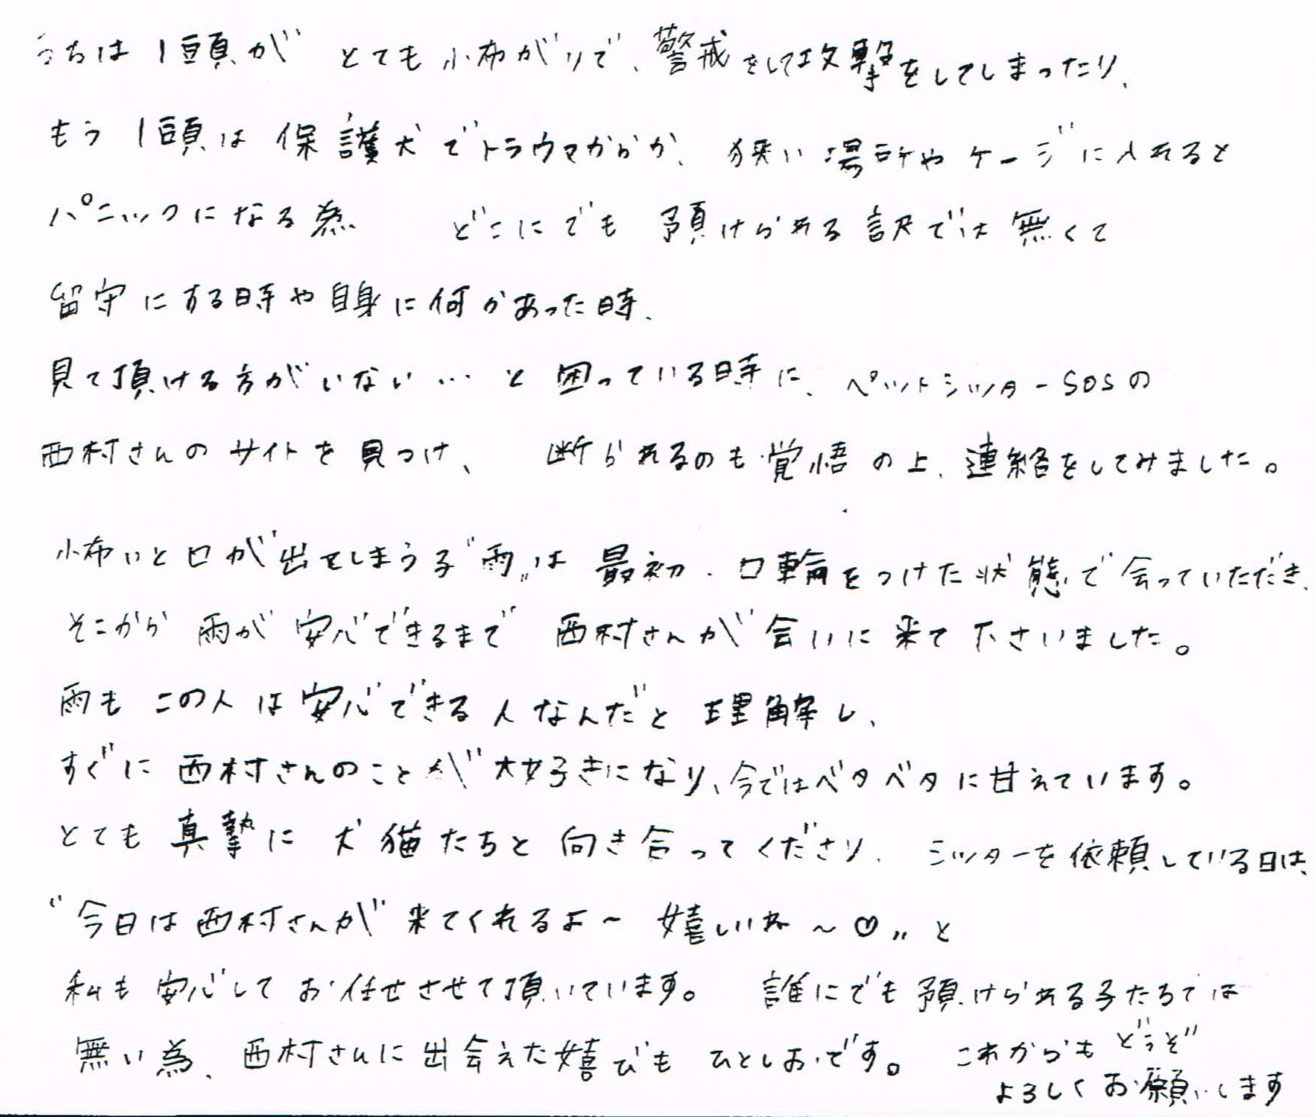 うちは1頭がとても怖がりで、警戒をして攻撃をしてしまったり、
もう1頭は保護犬でトラウマからか、狭い場所やケージに入れると
パニックになる為　どこにでも預けられる訳では無くて
留守にする時や自身に何かあった時、
見て頂ける方がいない…と困っている時に、ペットシッターSOSの
西村さんのサイトを見つけ、断られるのも覚悟の上、連絡をしてみました。
怖いと口が出てしまう子〝雨〟は最初、口輪をつけた状態で会っていただき、
そこから雨が安心できるまで西村さんが会いに来て下さいました。
雨もこの人は安心できる人なんだと理解し、
すぐに西村さんのことが大好きになり、今ではベタベタに甘えています。
とても真摯に犬猫たちと向き合ってくださり、シッターを依頼している日は、
〝今日は西村さんが来てくれるよ～嬉しいね～♡〟と
私も安心してお任せさせて頂いています。誰にでも預けられる子たちでは
無い為、西村さんに出会えた喜びもひとしおです。これからもどうぞ
よろしくお願いします